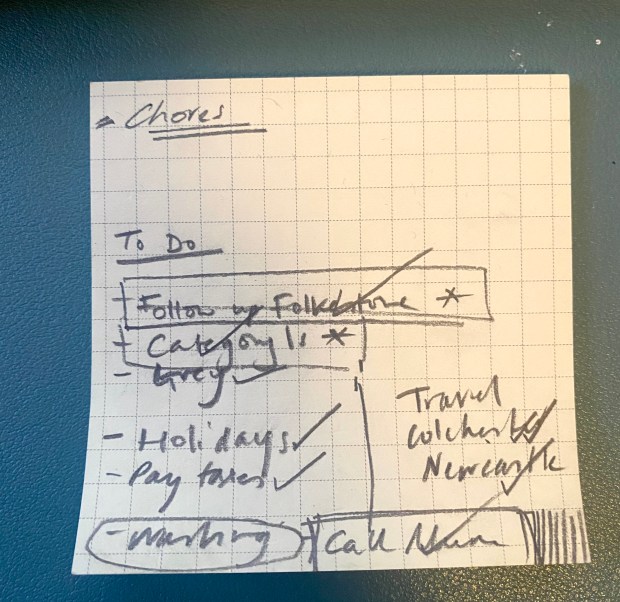 Chores
To Do
- Follow up Folkestone *
- Category Is *
- Grey
- Holidays
- Pay taxes
Travel
Colchester
Newcastle
- Washing
Call